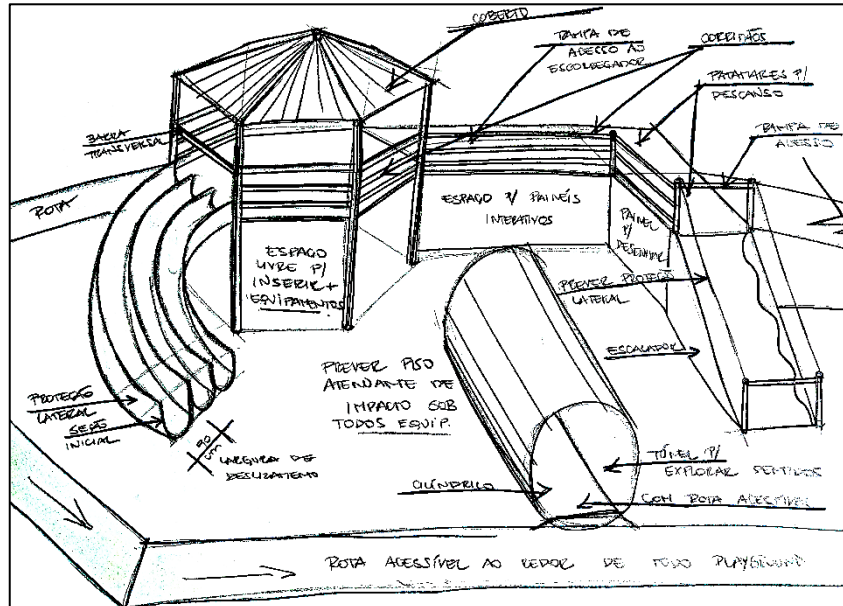 COBERTO
RAMPA DE
ACESSO AO
ESCORREGADOR
CORRIMÃOS
PATAMARES P/
DESCANSO
RAMPA DE
ACESSO
BARRA
TRANSVERSAL
ROTA
ESPAÇO P/ PAINÉIS
INTERATIVOS
PAINEL
P/
DESENHAR
ESPAÇO
LIVRE P/
INSERIR +
EQUIPAMENTOS
PREVER PROTEÇÃO
LATERAL
ESCALADOR
PREVER PISO
ATENUANTE DE
IMPACTO SOB
TODOS EQUIP.
PROTEÇÃO
LATERAL
SEÇÃO
INICIAL
90
cm
LARGURA DE
DESLIZAMENTO
CILÍNDRICO
TÚNEL P/
EXPLORAR SENTIDOS
COM ROTA ACESSÍVEL
ROTA ACESSÍVEL AO REDOR DE TODO PLAYGROUND